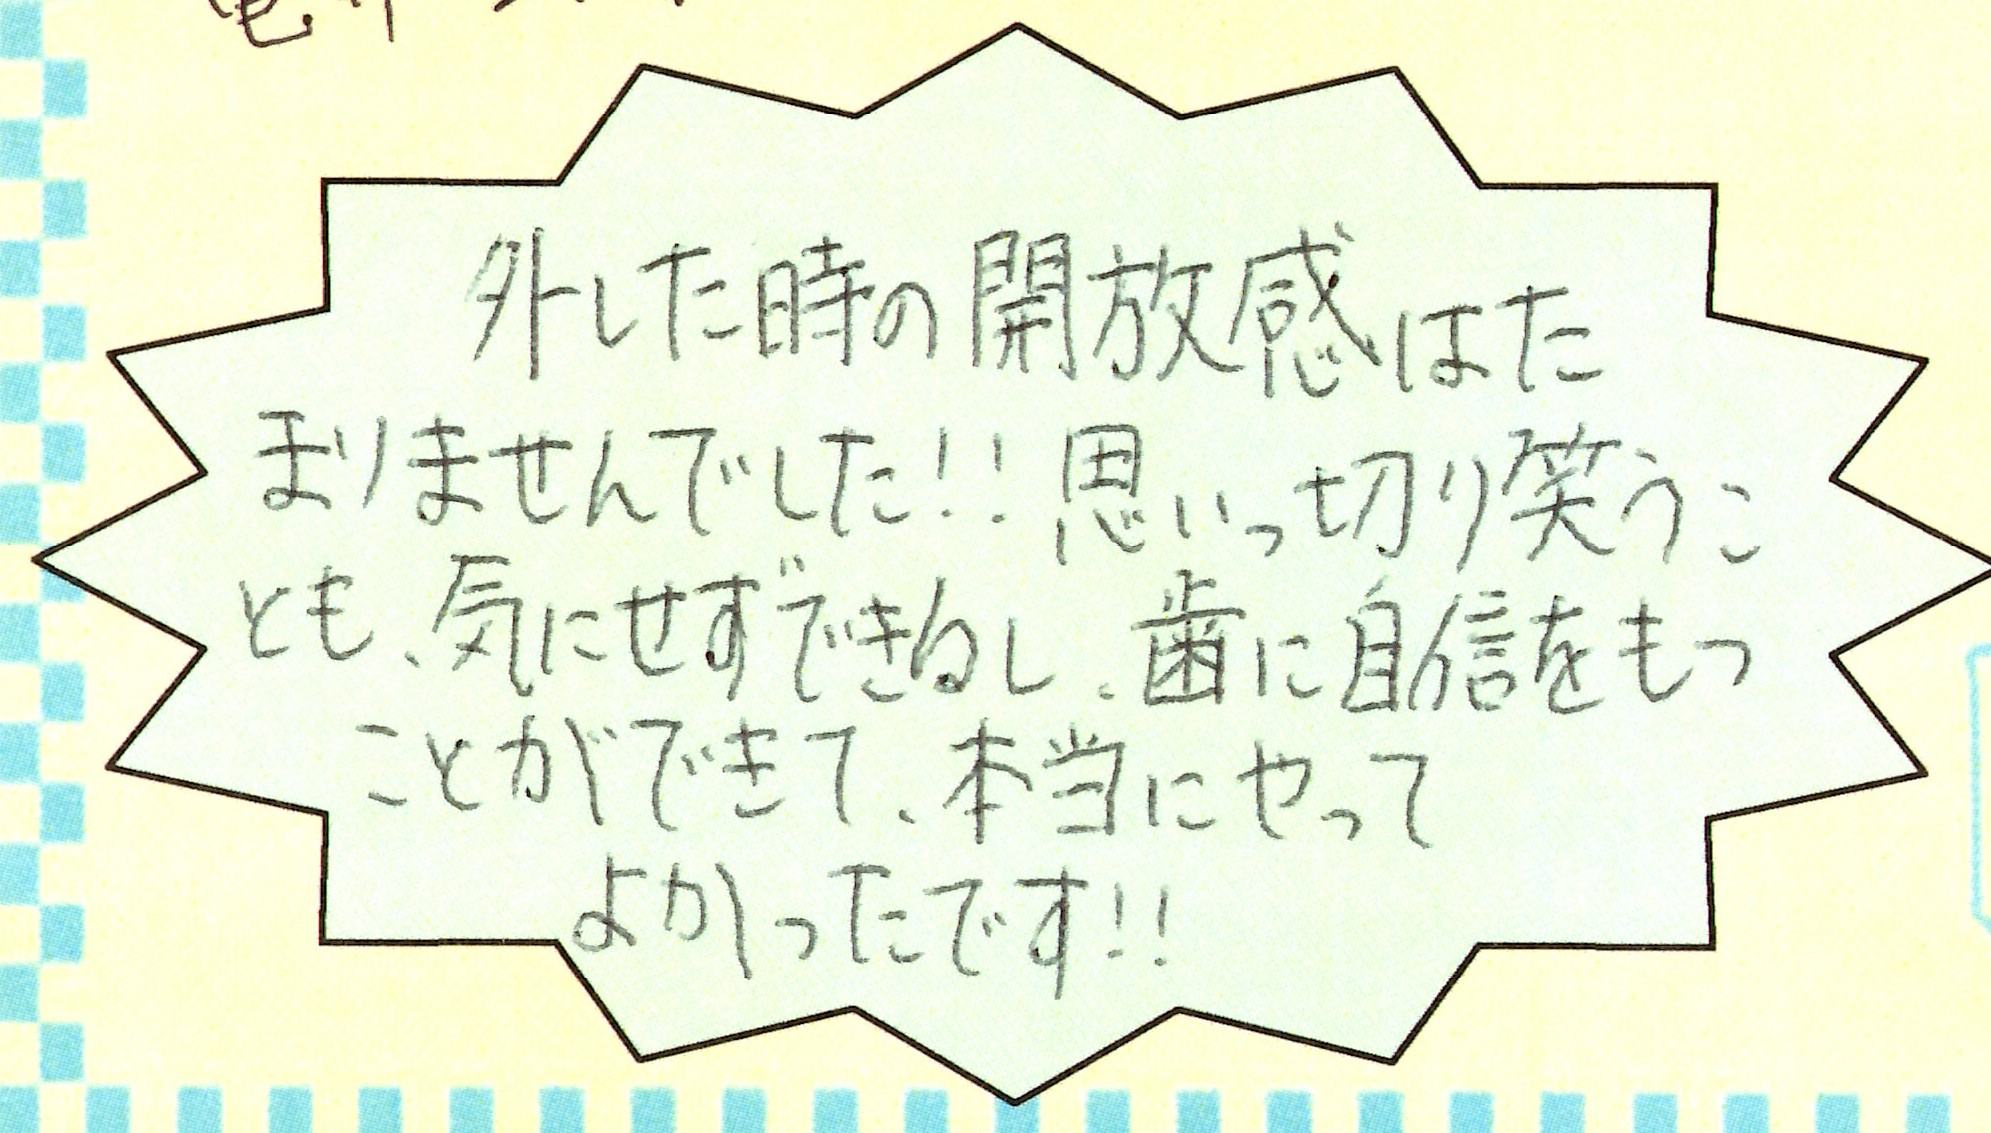 外した時の開放感はた
まりませんでした!! 思いっ切り笑うこ
とも、気にせずできるし、歯に自信をもつ
ことができて、本当にやって
よかったです!!